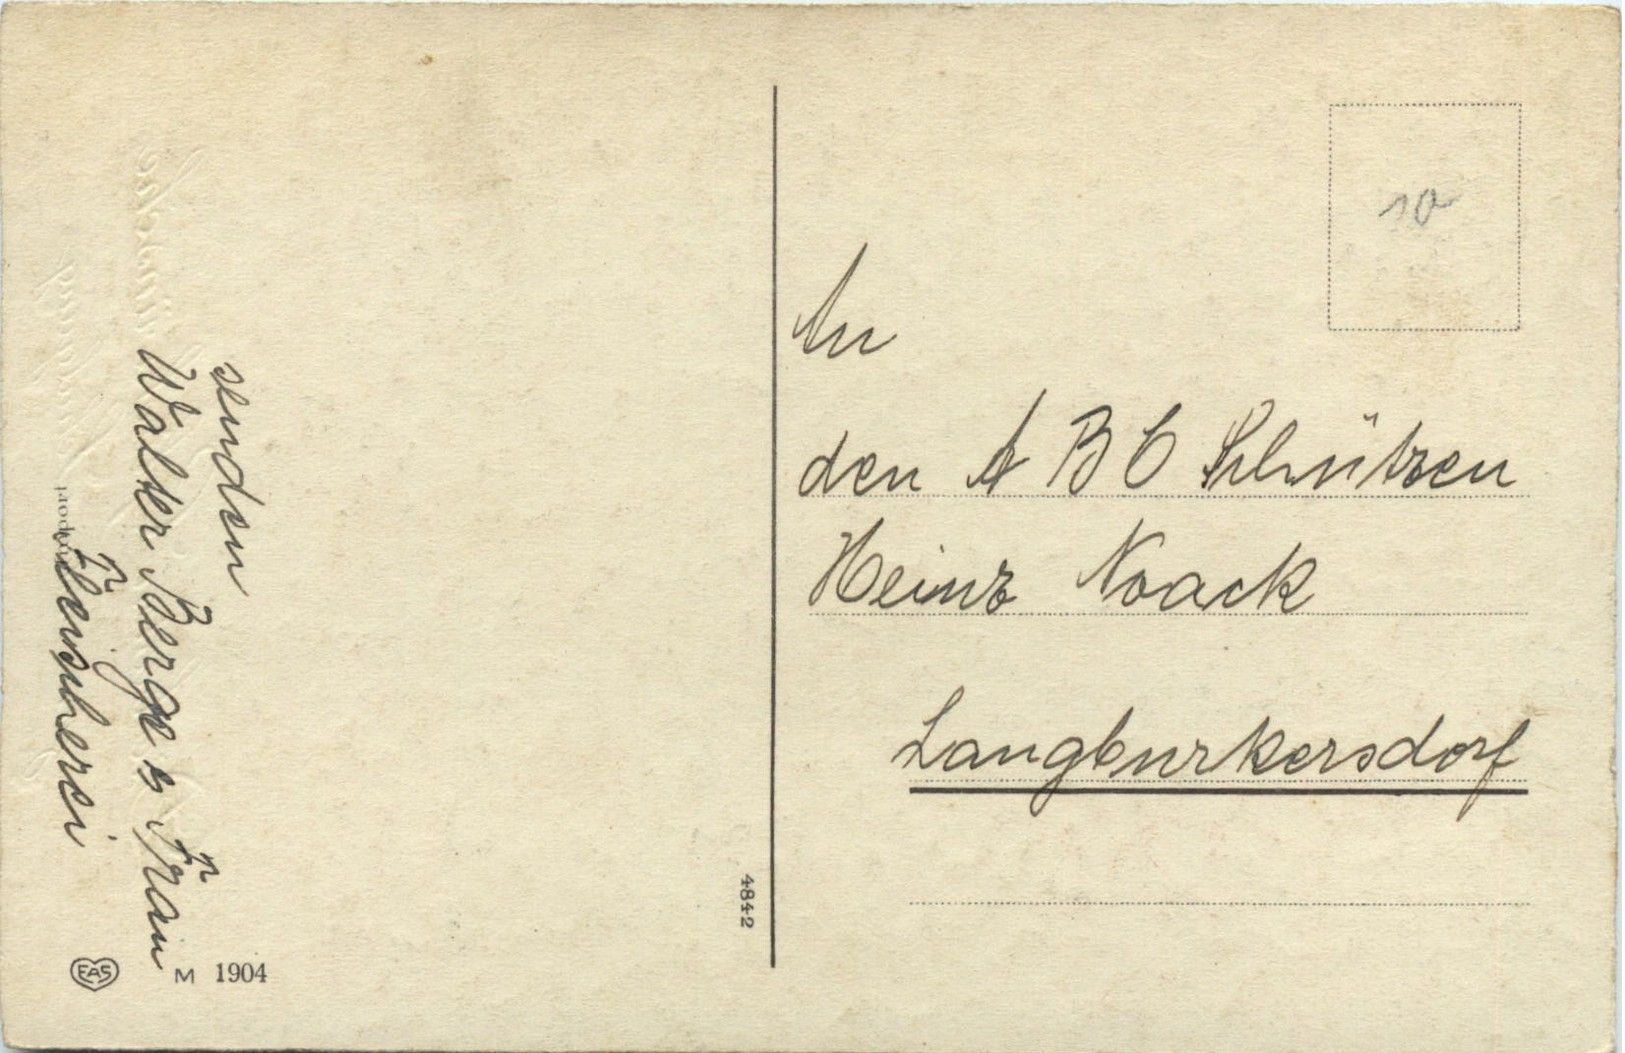 senden
Walter Berge u Frau
Fleischerei
EAS M 1904
4842
10
An
den A B C Schützen
Heinz Noack
Langburkersdorf